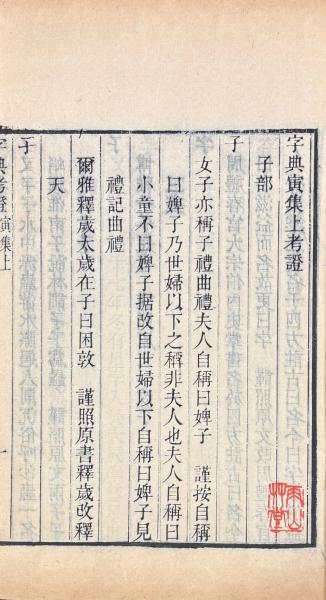 字典寅集上考證
子部
子
女子亦稱子禮曲禮夫人自稱曰婢子　謹按自稱
曰婢子乃世婦以下之稱非夫人也夫人自稱曰
小童不曰婢子据改自世婦以下自稱曰婢子見
禮記曲禮
爾雅釋歲太歲在子曰困敦　謹照原書釋歲改釋
天
子
字典考證寅集上
一